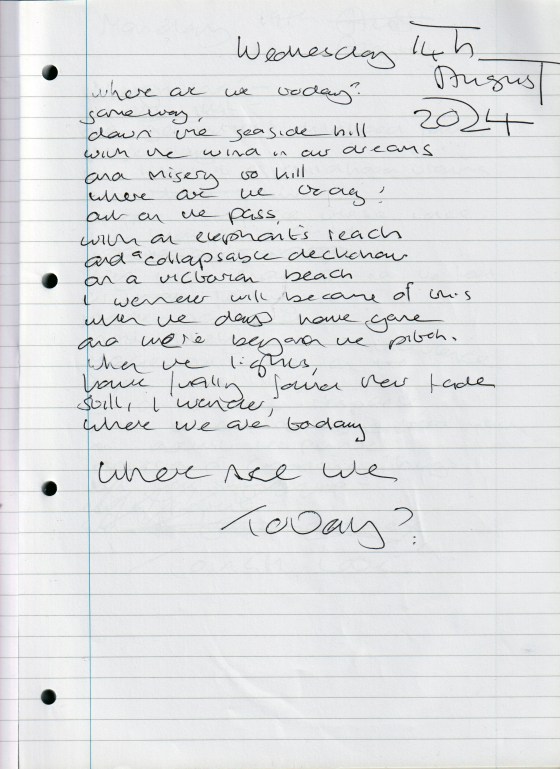 Wednesday 14th
August
2024
where are we today?
some way,
down the seaside hill
with the wind in our dreams
and misery to kill
where are we today?
out on the pass,
with an elephant's reach
and a collapsable deckchair
on a victorian beach
I wonder will become of this
when the days have gone
and we're beyond the pitch.
when the lights,
have finally found their fade
still, I wonder,
where we are today
Where are we
Today?